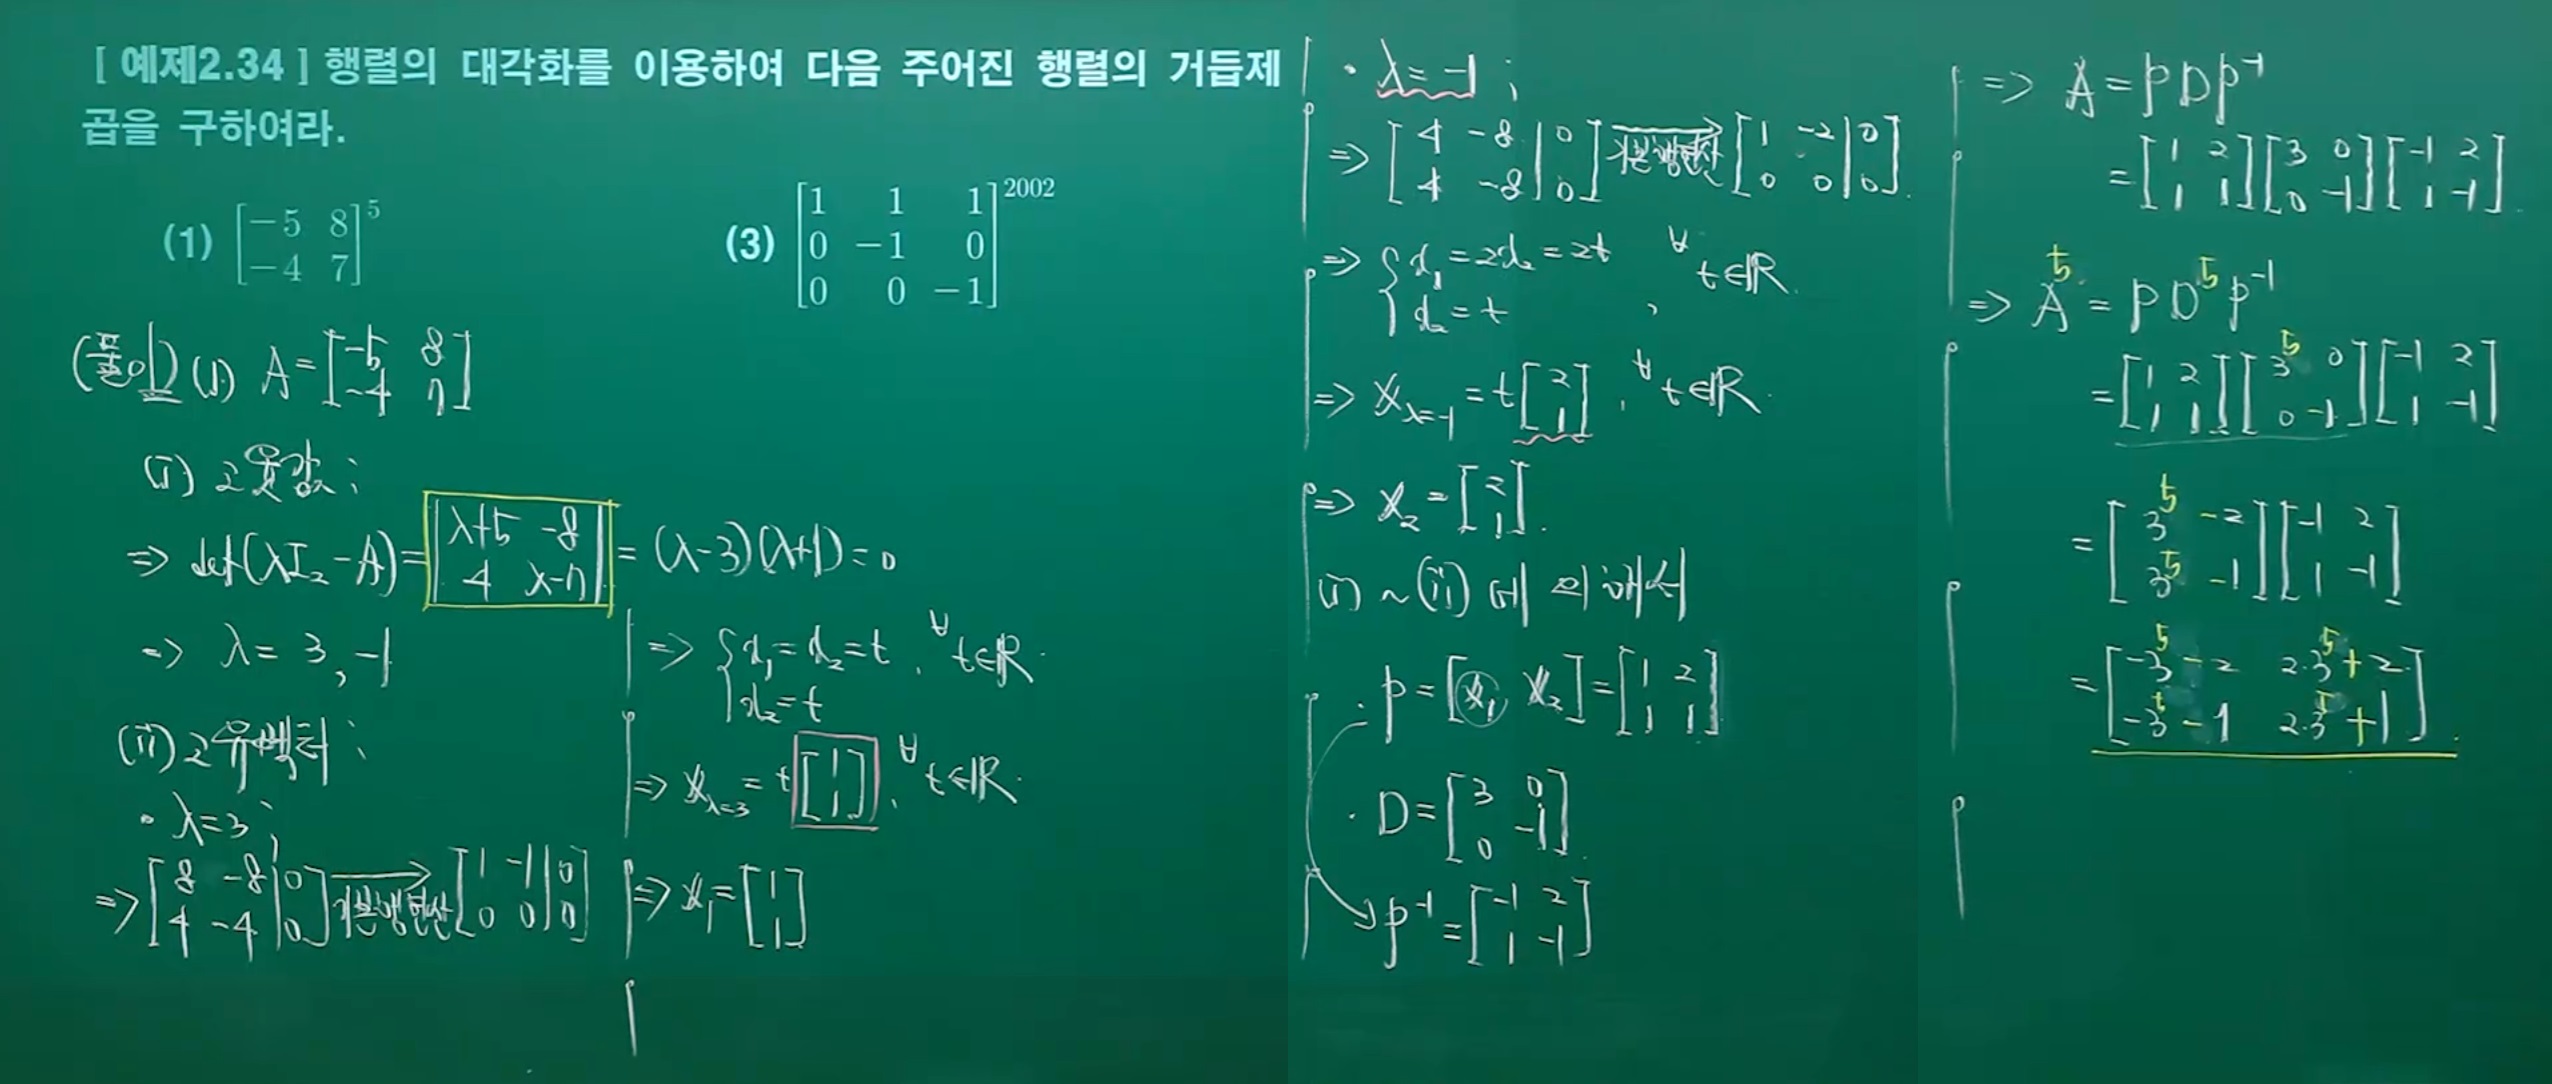 [ 예제2.34 ] 행렬의 대각화를 이용하여 다음 주어진 행렬의 거듭제
곱을 구하여라.
(1) [-5 8; -4 7]^5
(3) [1 1 1; 0 -1 0; 0 0 -1]^2002
(풀이) (1) A = [-5 8; -4 7]
(i) 고윳값 ;
=> det(λI₂ - A) = |λ+5 -8; 4 λ-7| = (λ-3)(λ+1) = 0
=> λ = 3, -1
(ii) 고유벡터 ;
· λ=3 ;
=> [8 -8 | 0; 4 -4 | 0] 기본행연산→ [1 -1 | 0; 0 0 | 0]
=> { x₁ = x₂ = t, ∀t∈ℝ.
x₂ = t
=> x_λ=3 = t[1; 1], ∀t∈ℝ.
=> x₁ = [1; 1]
· λ = -1 ;
=> [4 -8 | 0; 4 -8 | 0] 기본행연산→ [1 -2 | 0; 0 0 | 0].
=> { x₁ = 2x₂ = 2t
x₂ = t , ∀t∈ℝ.
=> x_λ=-1 = t[2; 1], ∀t∈ℝ.
=> x₂ = [2; 1].
(i) ~ (ii) 에 의해서
· P = [x₁ x₂] = [1 2; 1 1]
· D = [3 0; 0 -1]
P⁻¹ = [-1 2; 1 -1]
=> A = PDP⁻¹
= [1 2; 1 1][3 0; 0 -1][-1 2; 1 -1].
=> A⁵ = PD⁵P⁻¹
= [1 2; 1 1][3⁵ 0; 0 -1][-1 2; 1 -1]
= [3⁵ -2; 3⁵ -1][-1 2; 1 -1]
= [-3⁵-2 2·3⁵+2; -3⁵-1 2·3⁵+1].